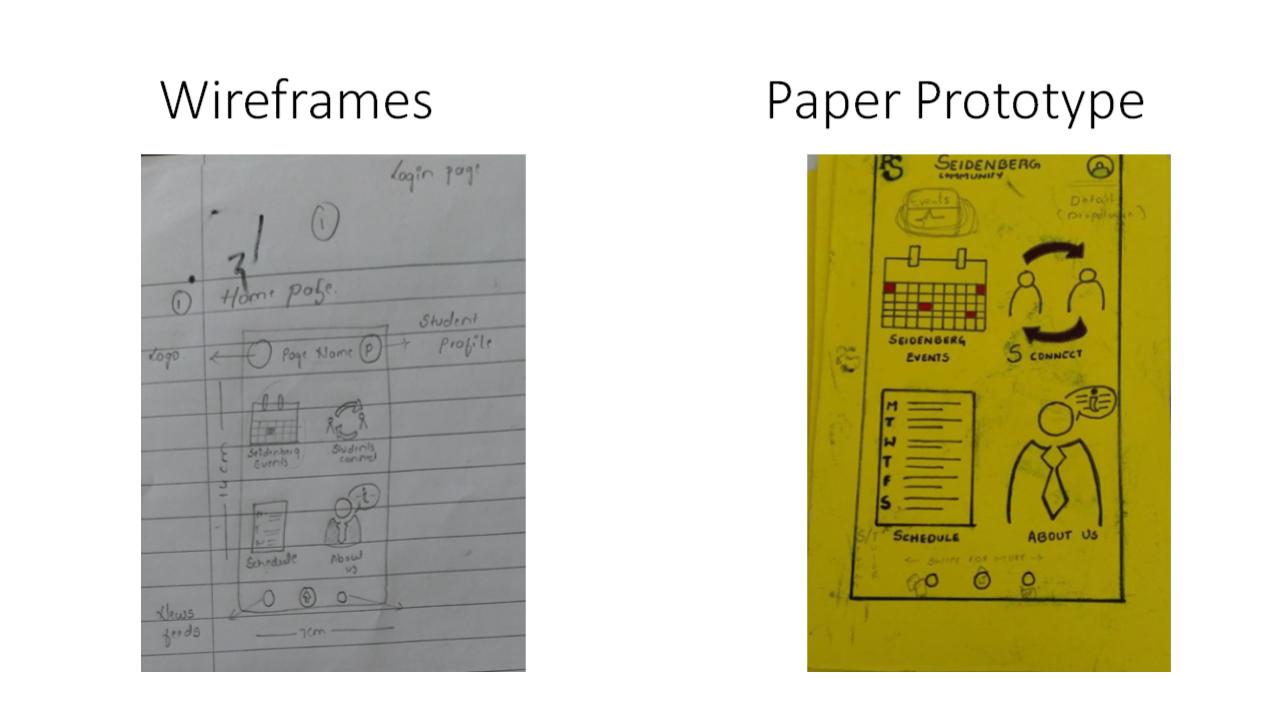 Wireframes
Paper Prototype
Login page
1
1 Home page.
Student
Profile
Logo
Page Name P
Seidenberg
Events
Students
Connect
Schedule
About
us
News
feeds
7cm
PS
SEIDENBERG
COMMUNITY
Events
Detail
(Dropdown)
SEIDENBERG
EVENTS
S CONNECT
M
T
W
T
F
S
i
SCHEDULE
ABOUT US
SWIPE FOR MORE